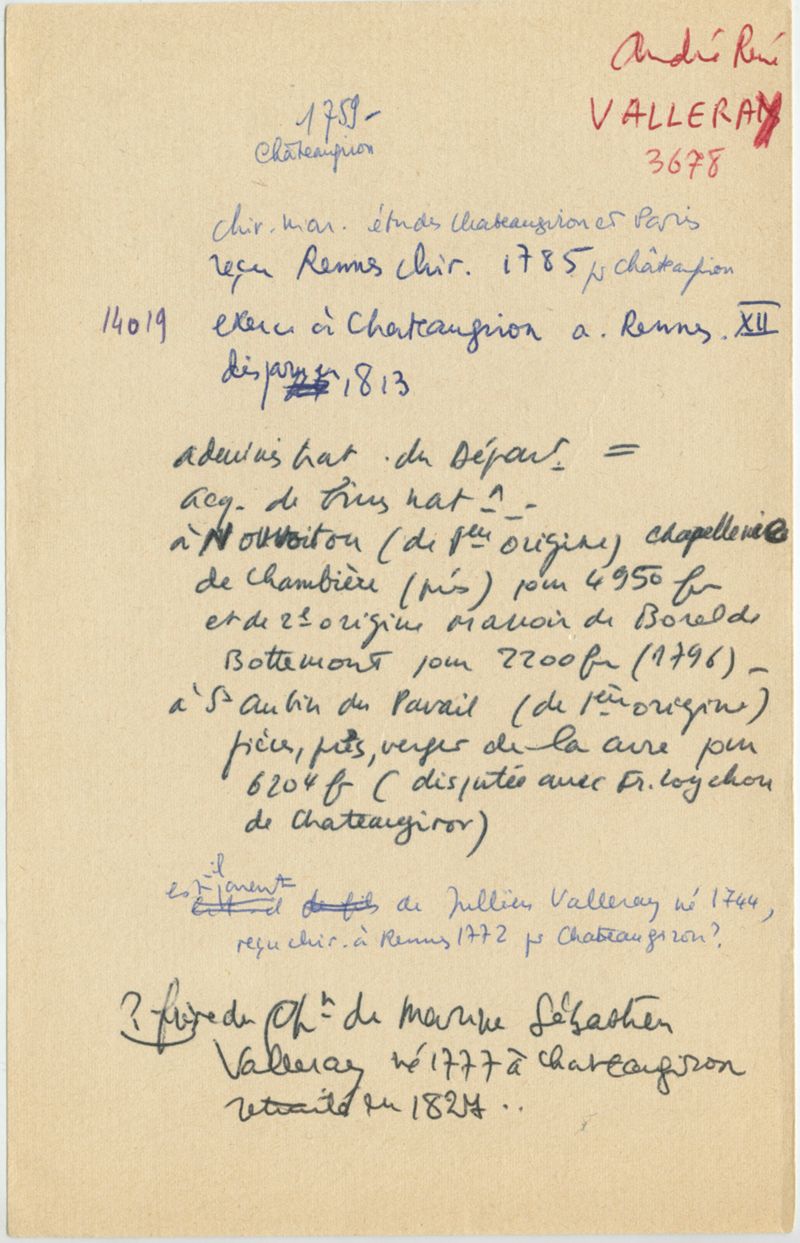 André René
VALLERAY
3678
1759-
Châteaugiron
chir. mar. études Chateaugiron et Paris
reçu Rennes chir. 1785 pr Châteaugiron
14019 exerce à Chateaugiron a. Rennes. XII
disparu en 1813
administrat. du Départ. =
acq. de biens nat x -
à Nouvoitou (de 1ère origine) chapellenie
de Chambière (prés) pour 4950 fr
et de 2de origine manoir de Borel de
Bottemont pour 2200 fr (1796) -
à St Aubin du Pavail (de 1ère origine)
pièces, prés, verger de la cure pour
6204 fr (disputée avec Fr. Loychon
de Chateaugiron)
est-il parent de Jullien Valleray né 1744,
reçu chir. à Rennes 1772 pr Chateaugiron?
? frère du Chn de Marine Sébastien
Valleray né 1777 à Chateaugiron
retraité en 1827..